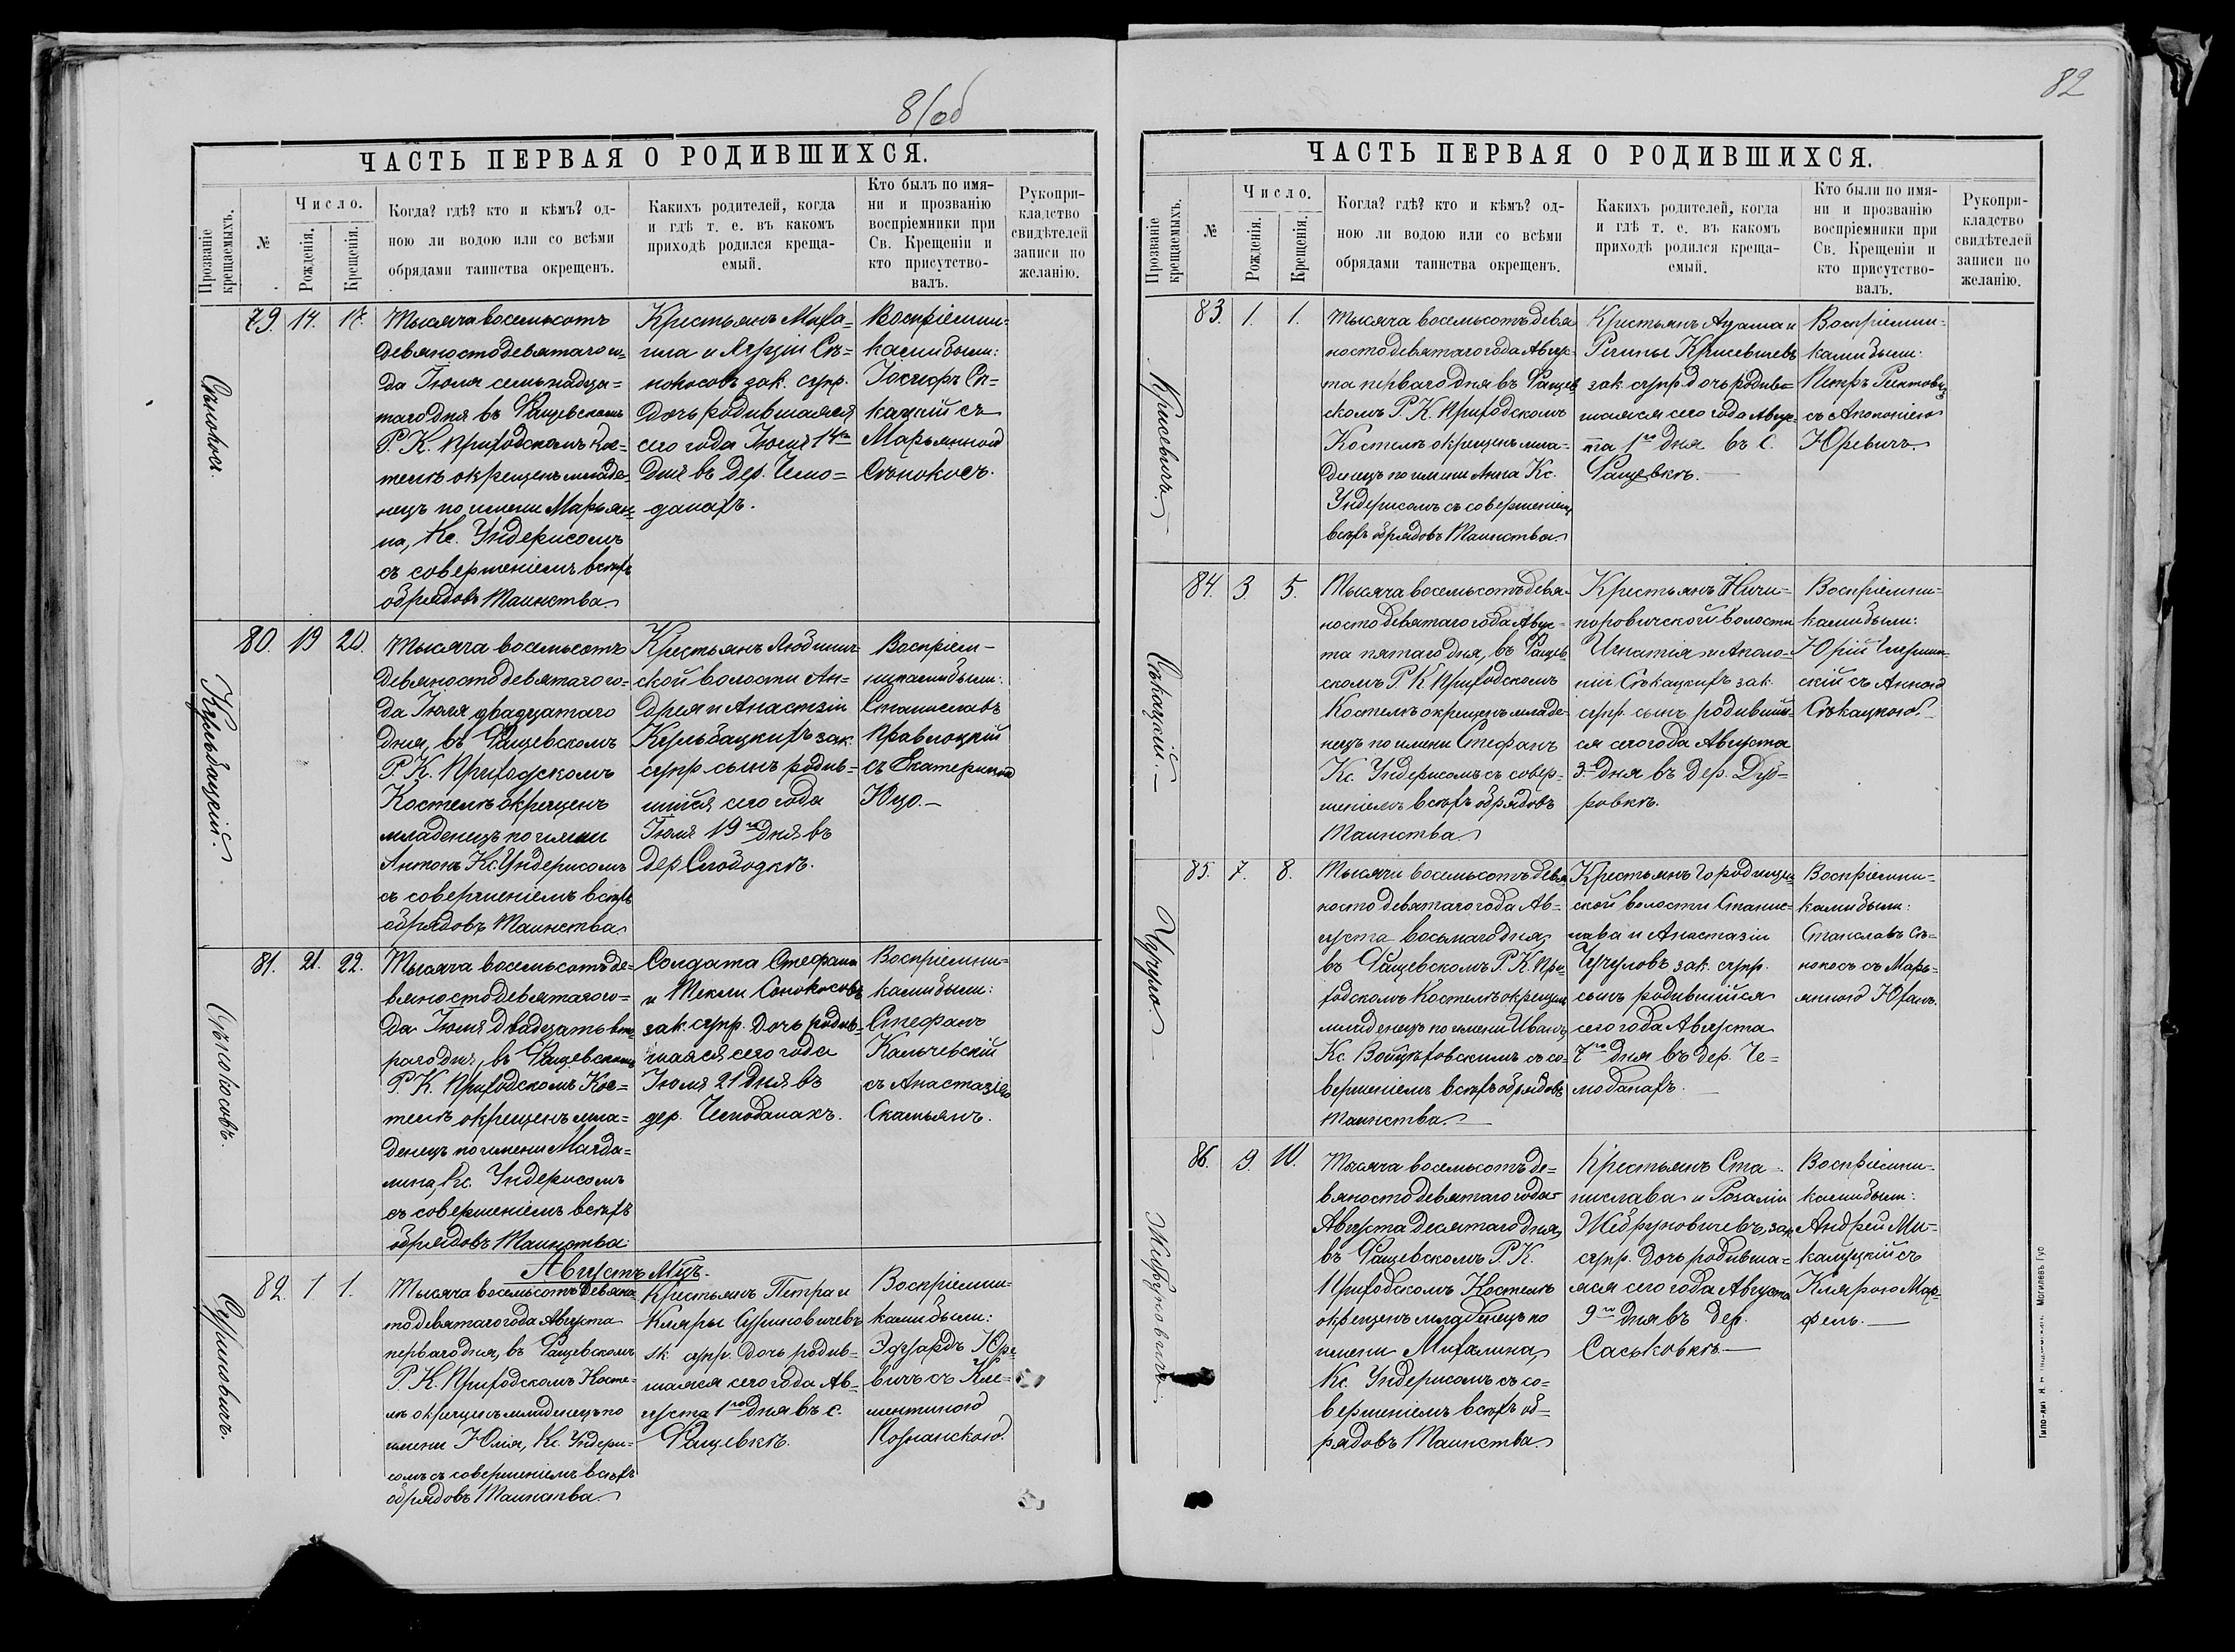 81об
ЧАСТЬ ПЕРВАЯ О РОДИВШИХСЯ.
Прозваніе крещаемыхъ.
№
Число.
Рожденія.
Крещенія.
Когда? гдѣ? кто и кѣмъ? од-
ною ли водою или со всѣми
обрядами таинства окрещенъ.
Какихъ родителей, когда
и гдѣ т. е. въ какомъ
приходѣ родился креща-
емый.
Кто былъ по имя-
ни и прозванію
воспріемники при
Св. Крещеніи и
кто присутство-
валъ.
Рукопри-
кладство
свидѣтелей
записи по
желанію.
Сѣнокосъ.
79. 14. 17.
Тысяча восемьсотъ
девяностодевятаго го-
да Іюля семьнадца-
таго дня въ Фащевскомъ
Р. К. Приходскомъ Кос-
телѣ окрещенъ младе-
нецъ по имени Марьян-
на, Кс. Ундерисомъ
съ совершеніемъ всѣхъ
обрядовъ Таинства
Крестьянъ Миха-
ила и Агрпіи Сѣ-
нокосовъ зак. супр.
Дочь родившаяся
сего года Іюля 14го
Дня въ Дер. Чемо-
данахъ.
Воспріемни-
ками были:
Іосифъ Сѣ-
кацкій съ
Марьянною
Сѣнокосъ.
Кульбацкій.
80. 19 20.
Тысяча восемьсотъ
девяностодевятаго го-
да Іюля двадцатаго
дня, въ Фащевскомъ
Р. К. Приходскомъ
Костелѣ окрещенъ
младенецъ по имени
Антонъ Кс. Ундерисомъ
съ совершеніемъ всѣхъ
обрядовъ Таинства
Крестьянъ Любинич-
ской волости Ан-
дрея и Анастазіи
Кульбацкихъ зак.
супр. сынъ родив-
шійся сего года
Іюля 19го Дня въ
дер. Слободкѣ.
Воспріем-
никами были:
Станиславъ
Правлоцкій
съ Екатериною
Юцо.
Сѣнокосовъ.
81. 21. 22.
Тысяча восемьсотъ де-
вяностодевятаго го-
да Іюля двадцать вто-
раго дня, въ Фащевскомъ
Р. К. Приходскомъ Кос-
телѣ окрещенъ мла-
денецъ по имени Магда-
лина, Кс. Ундерисомъ
съ совершеніемъ всѣхъ
обрядовъ Таинства
Солдата Стефана
и Текли Сѣнокосовъ
зак. супр. дочь родив-
шаяся сего года
Іюля 21 дня въ
дер. Чемоданахъ.
Воспріемни-
ками были:
Стефанъ
Кальчевскій
съ Анастазіею
Скамьянъ.
Августъ Мцъ.
Суриновичъ.
82. 1 1.
Тысяча восемьсотъ девяно-
сто девятаго года Августа
перваго дня, въ Фащевскомъ
Р. К. Приходскомъ Косте-
лѣ окрещенъ младенецъ по
имени Юлія, Кс. Ундери-
сомъ съ совершеніемъ всѣхъ
обрядовъ Таинства.
Крестьянъ Петра и
Кляры Суриновичевъ
зк. супр. дочь родив-
шаяся сего года Ав-
густа 1го дня въ с.
Фащевкѣ.
Воспріемни-
ками были:
Эдуардъ Юре-
вичъ съ Кле-
ментиною
Познанскою.
82
ЧАСТЬ ПЕРВАЯ О РОДИВШИХСЯ.
Прозваніе крещаемыхъ.
№
Число.
Рожденія.
Крещенія.
Когда? гдѣ? кто и кѣмъ? од-
ною ли водою или со всѣми
обрядами таинства окрещенъ.
Какихъ родителей, когда
и гдѣ т. е. въ какомъ
приходѣ родился креща-
емый.
Кто были по имя-
ни и прозванію
воспріемники при
Св. Крещеніи и
кто присутство-
валъ.
Рукопри-
кладство
свидѣтелей
записи по
желанію.
Крисевичъ.
83. 1. 1.
Тысяча восемьсотъ девя-
ностодевятаго года Авгус-
та перваго дня въ Фащев-
скомъ Р. К. Приходскомъ
Костелѣ окрещенъ мла-
денецъ по имени Анна Кс.
Ундерисомъ съ совершеніемъ
всѣхъ обрядовъ Таинства.
Крестьянъ Адама и
Регины Крисевичевъ
зак. супр. дочь родив-
шаяся сего года Авгус-
та 1го дня въ с.
Фащевкѣ.
Воспріемни-
ками были:
Петръ
съ Аполоніею
Юревичъ.
Сѣкацкій.
84. 3. 5.
Тысяча восемьсотъ девя-
ностодевятаго года Авгус-
та пятаго дня, въ Фащев-
скомъ Р. К. Приходскомъ
Костелѣ окрещенъ младе-
нецъ по имени Стефанъ
Кс. Ундерисомъ съ совер-
шеніемъ всѣхъ обрядовъ
Таинства.
Крестьянъ Ничи-
поровичской волости
Игнатія и Аполо-
ніи Сѣкацкихъ зак.
супр. сынъ родивший-
ся сего года Августа
3го дня въ Дер. Дуб-
ровкѣ.
Воспріемни-
ками были:
Юрій
скій съ Анною
Сѣкацкою.
Цуцуло.
85. 7. 8.
Тысячи восемьсотъ девя-
ностодевятаго года Ав-
густа восьмаго дня,
въ Фащевскомъ Р. К. При-
ходскомъ Костелѣ окрещенъ
младенецъ по имени Иванъ,
Кс. Войцѣховскимъ съ со-
вершеніемъ всѣхъ обрядовъ
Таинства.
Крестьянъ Городищен-
ской волости Станис-
лава и Анастазіи
Цуцуловъ зак. супр.
сынъ родившійся
сего года Августа
7го дня въ дер. Че-
моданахъ.
Воспріемни-
ками были:
Станславъ Сѣ-
нокосъ съ Марь-
янною Юханъ.
Жебруновичъ.
86. 9. 10.
Тысяча восемьсотъ де-
вяностодевятаго года
Августа десятаго дня,
въ Фащевскомъ Р. К.
Приходскомъ Костелѣ
окрещенъ младенецъ по
имени Михалина,
Кс. Ундерисомъ съ со-
вершеніемъ всѣхъ об-
рядовъ Таинства.
Крестьянъ Ста-
нислава и Розаліи
Жебруновичевъ, зак.
супр. дочь родивша-
яся сего года Августа
9го дня въ дер.
Саськовкѣ.
Воспріемни-
ками были:
Андрей Ми-
калуцкій съ
Клярою Мар-
фель.
Могилевъ губ